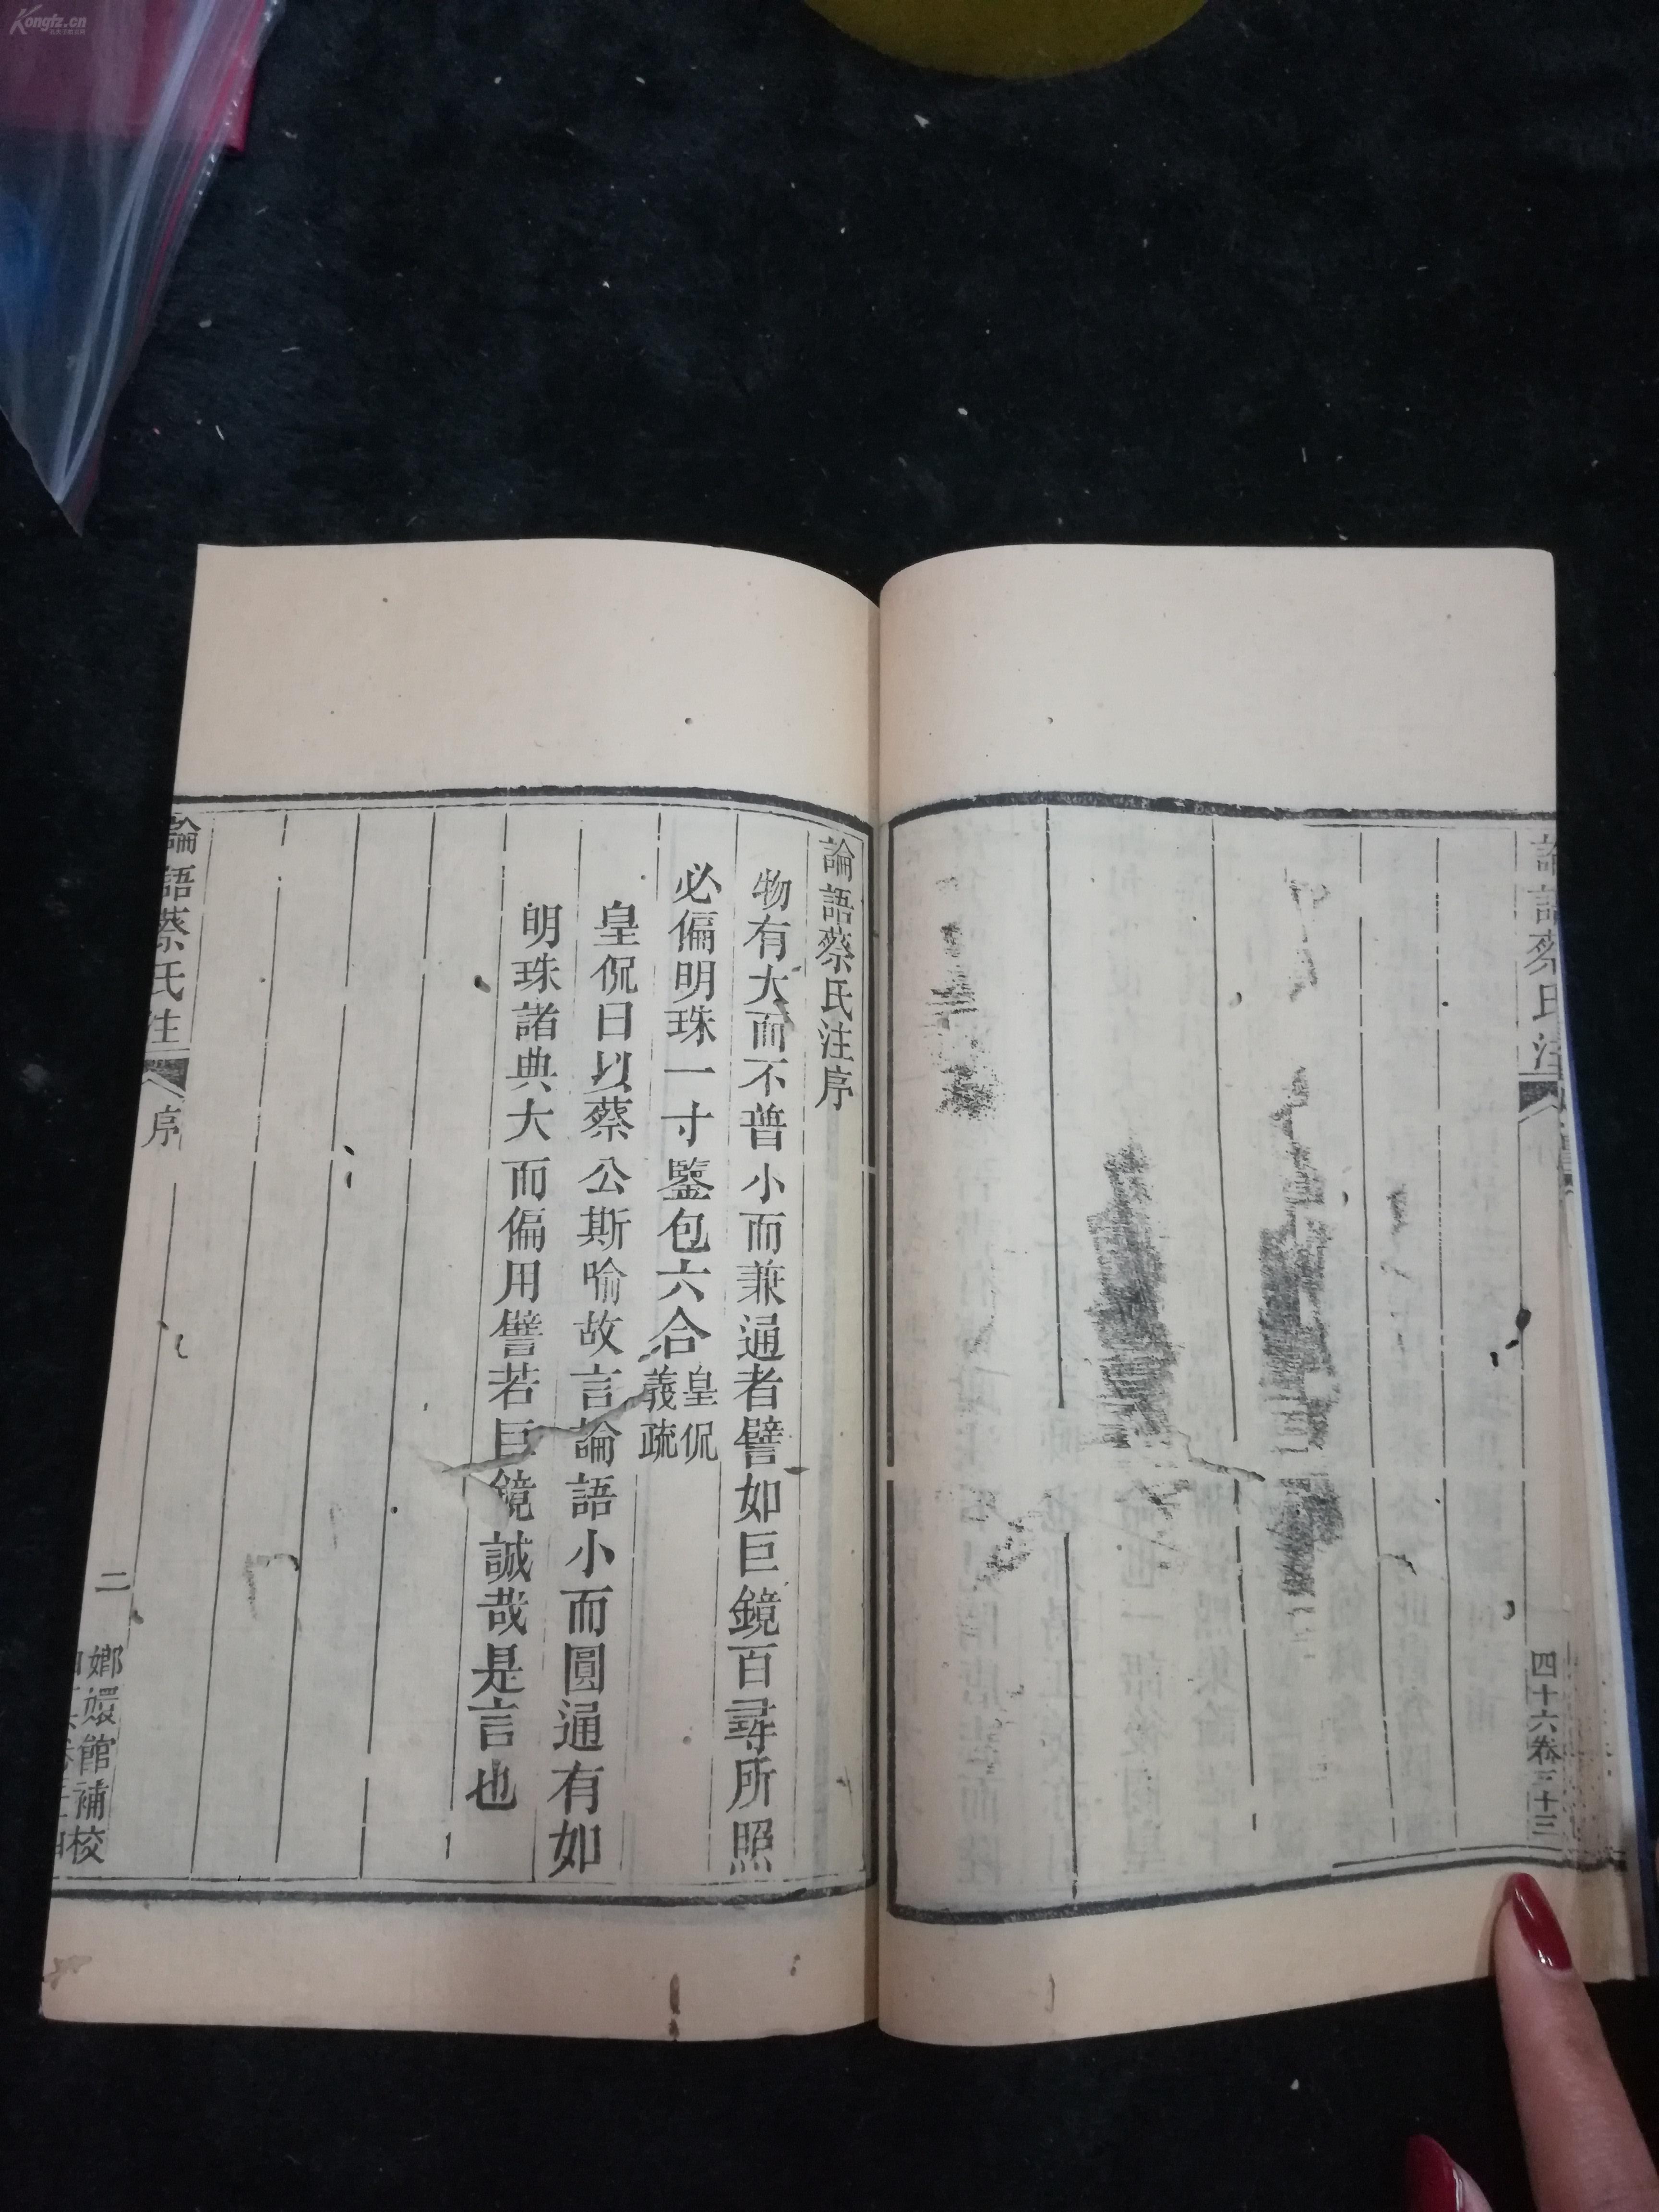 Kongfz.cn
四十六卷三十三
論語蔡氏注序
物有大而不普小而兼通者譬如巨鏡百尋所照
必偏明珠一寸鑒包六合皇侃義疏
皇侃曰以蔡公斯喻故言論語小而圓通有如
明珠諸典大而偏用譬若巨鏡誠哉是言也
論語蔡氏注 序 二 嫏嬛館補校